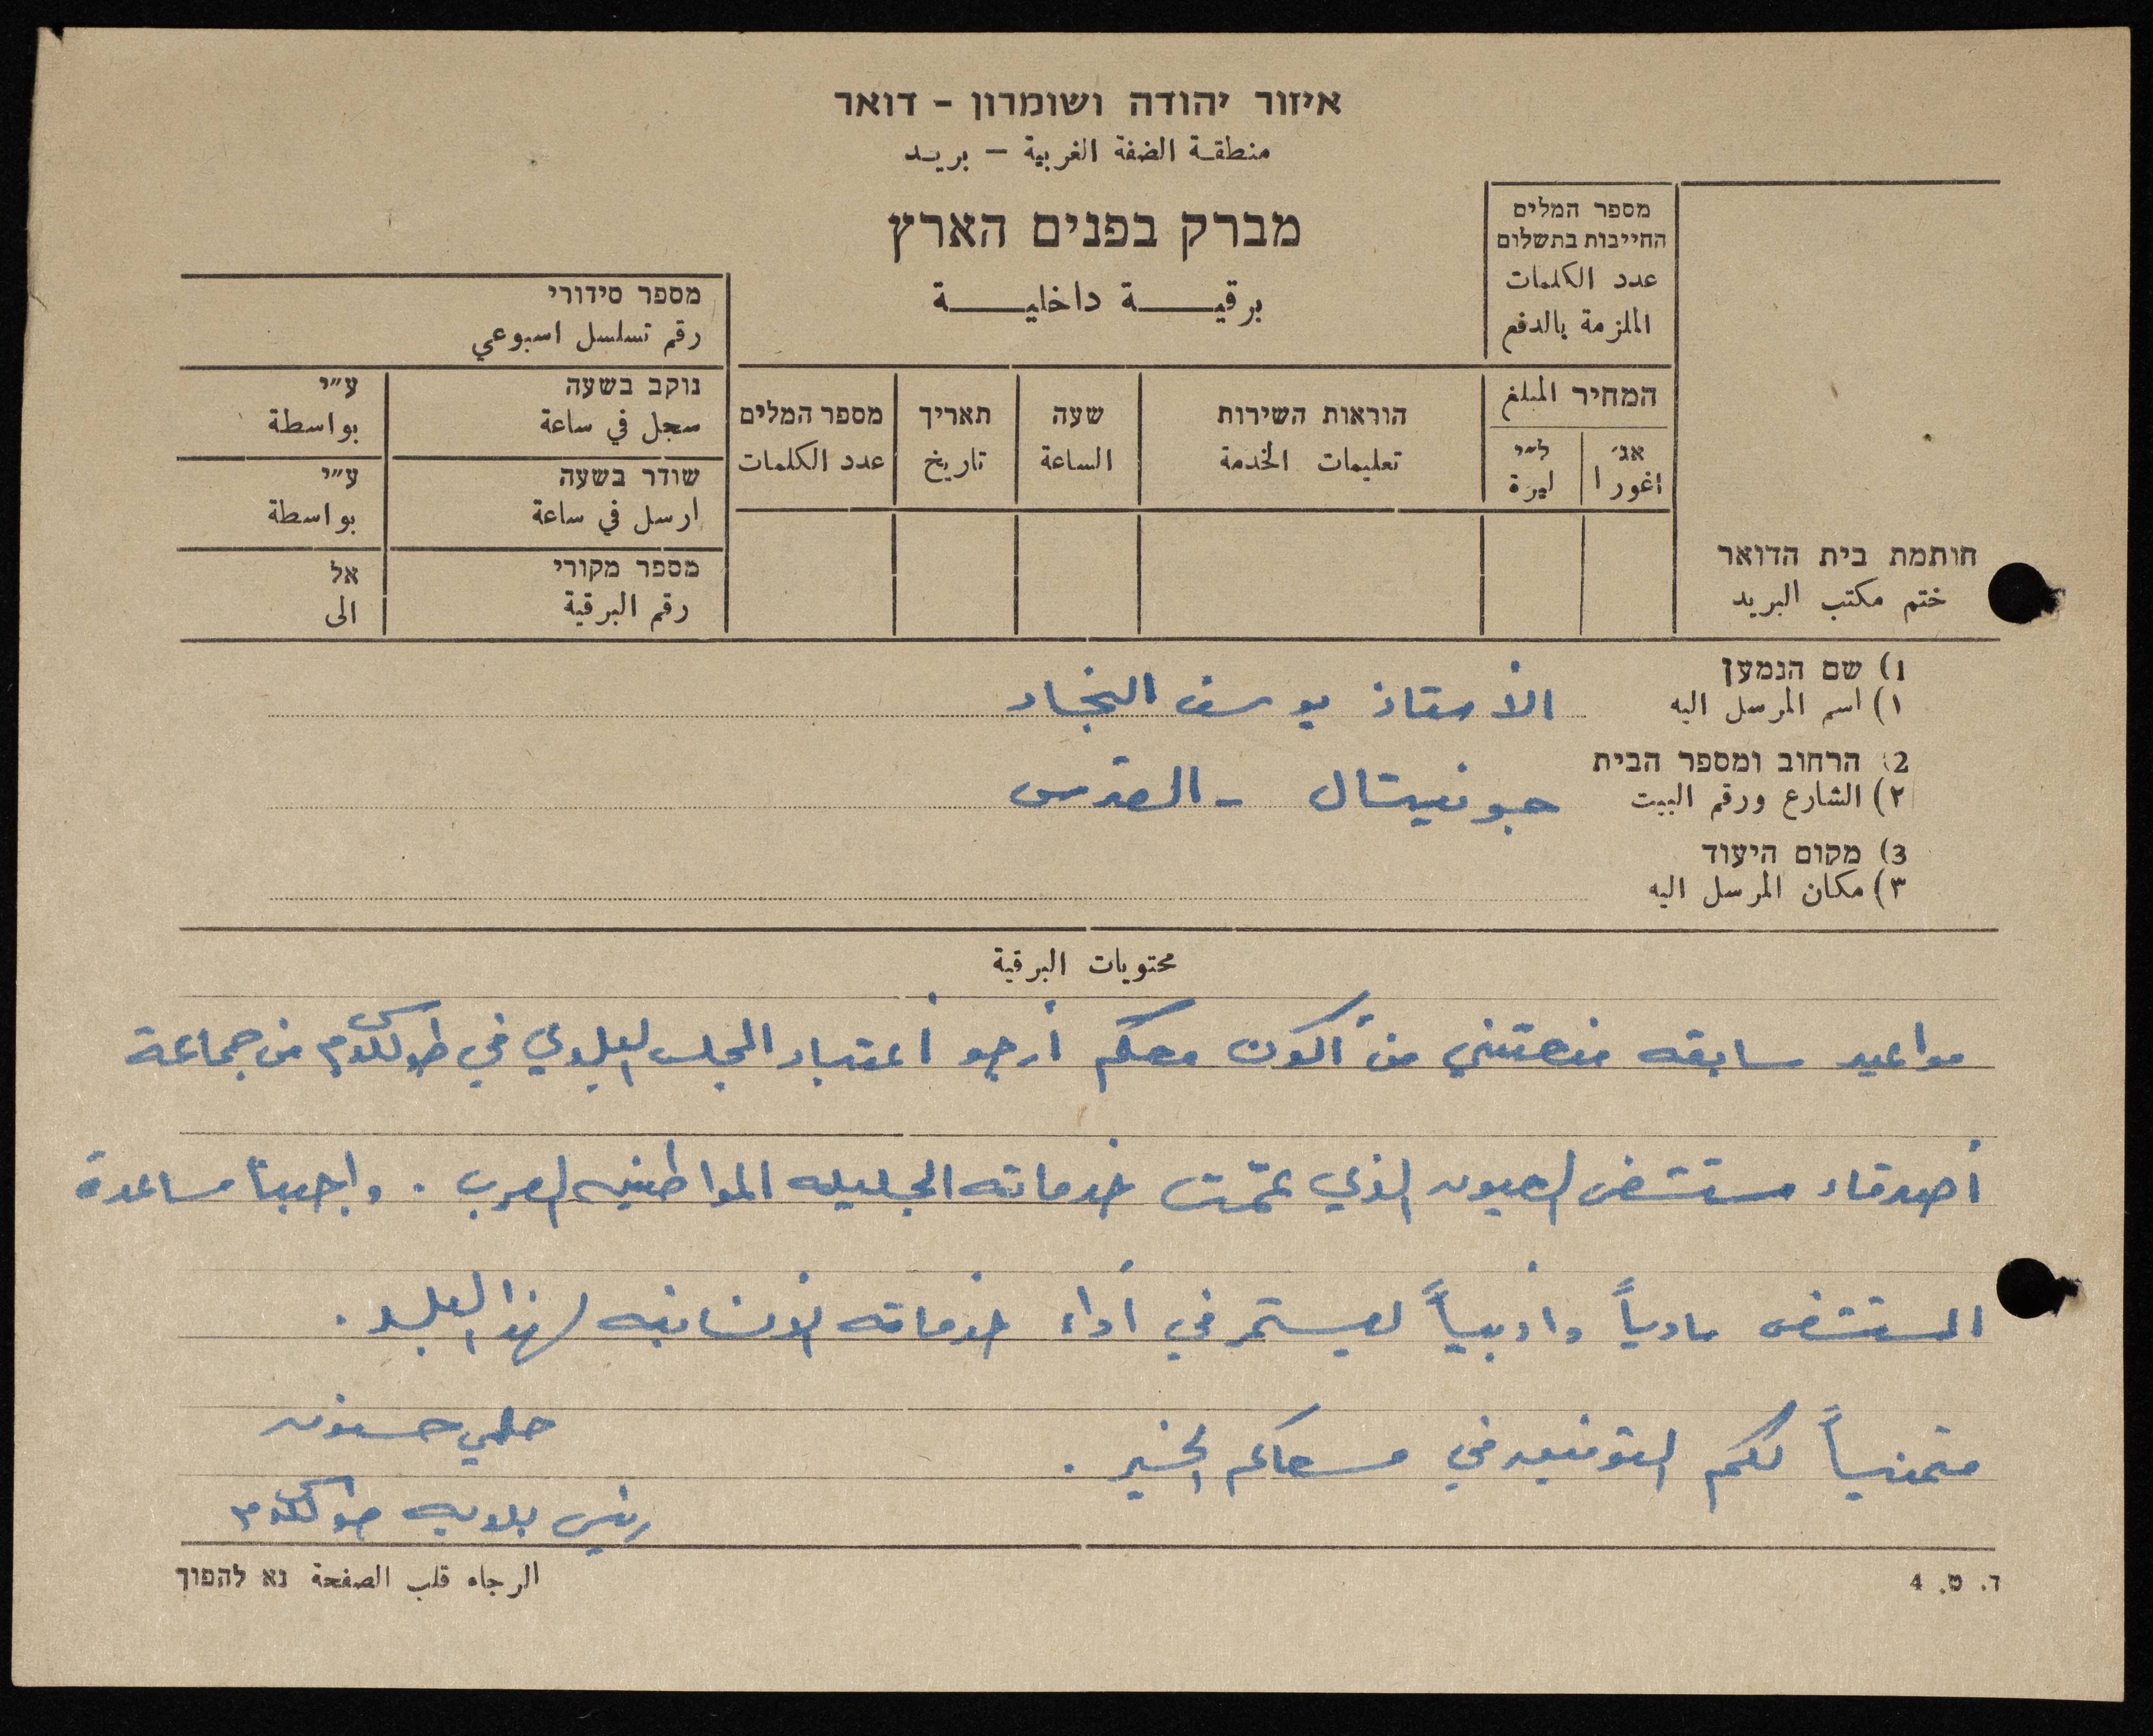 איזור יהודה ושומרון - דואר
منطقة الضفة الغربية - بريد
מברק בפנים הארץ
برقية داخلية
מספר המלים
החייבות בתשלום
عدد الكلمات
الملزمة بالدفع
מספר סידורי
رقم تسلسل اسبوعي
המחיר المبلغ
אג׳ ל״י
اغورا ليرة
הוראות השירות
تعليمات الخدمة
שעה
الساعة
תאריך
تاريخ
מספר המלים
عدد الكلمات
נוקב בשעה ע״י
سجل في ساعة بواسطة
שודר בשעה ע״י
ارسل في ساعة بواسطة
מספר מקורי אל
رقم البرقية الى
חותמת בית הדואר
ختم مكتب البريد
1) שם הנמען
١) اسم المرسل اليه الأستاذ يوسف النجار
2) הרחוב ומספר הבית
٢) الشارع ورقم البيت جونسيتال - القدس
3) מקום היעוד
٣) مكان المرسل اليه
محتويات البرقية
مواعيد سابقه منعتني من أكون معكم أرجو أعتبار المجلس البلدي في طولكرم من جماعة
أصدقاء مستشفى العيون الذي عمّت خدماته الجليله المواطنين العرب . واجبنا مساعدة
المستشفى مادياً وأدبياً ليستمر في أداء خدماته الأنسانيه لهذا البلد .
متمنياً لكم التوفيق في مسعاكم الخير .
حلمي حنون
رئيس بلدية طولكرم
الرجاء قلب الصفحة נא להפוך
ד. ט. 4